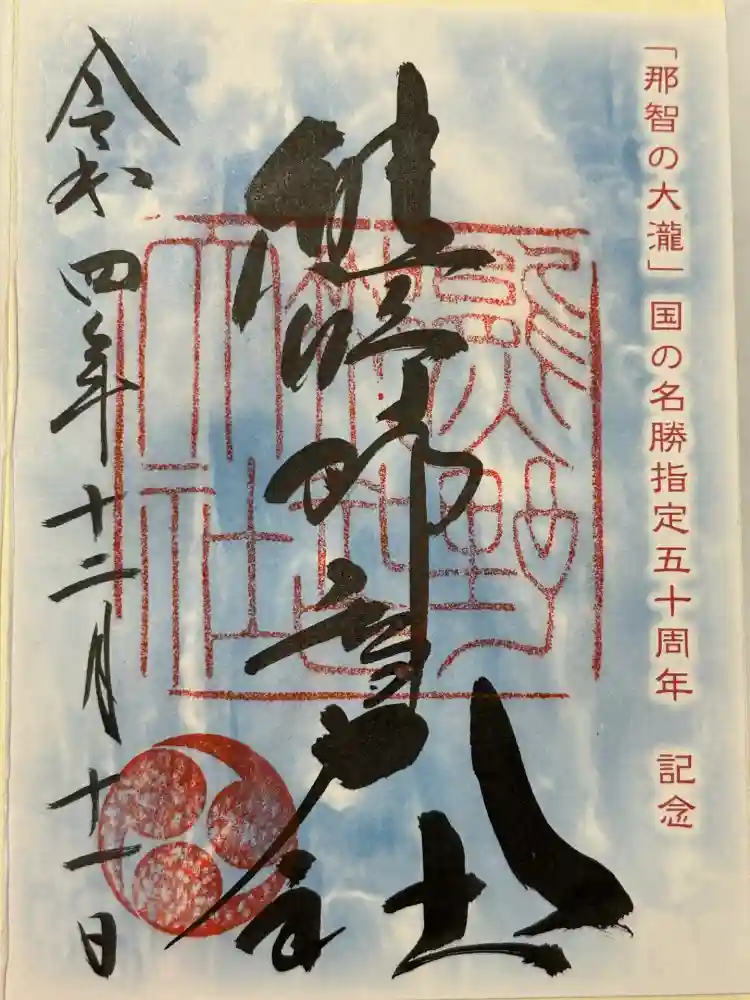 「那智の大瀧」国の名勝指定五十周年　記念
熊野那智大社
令和四年十二月十一日